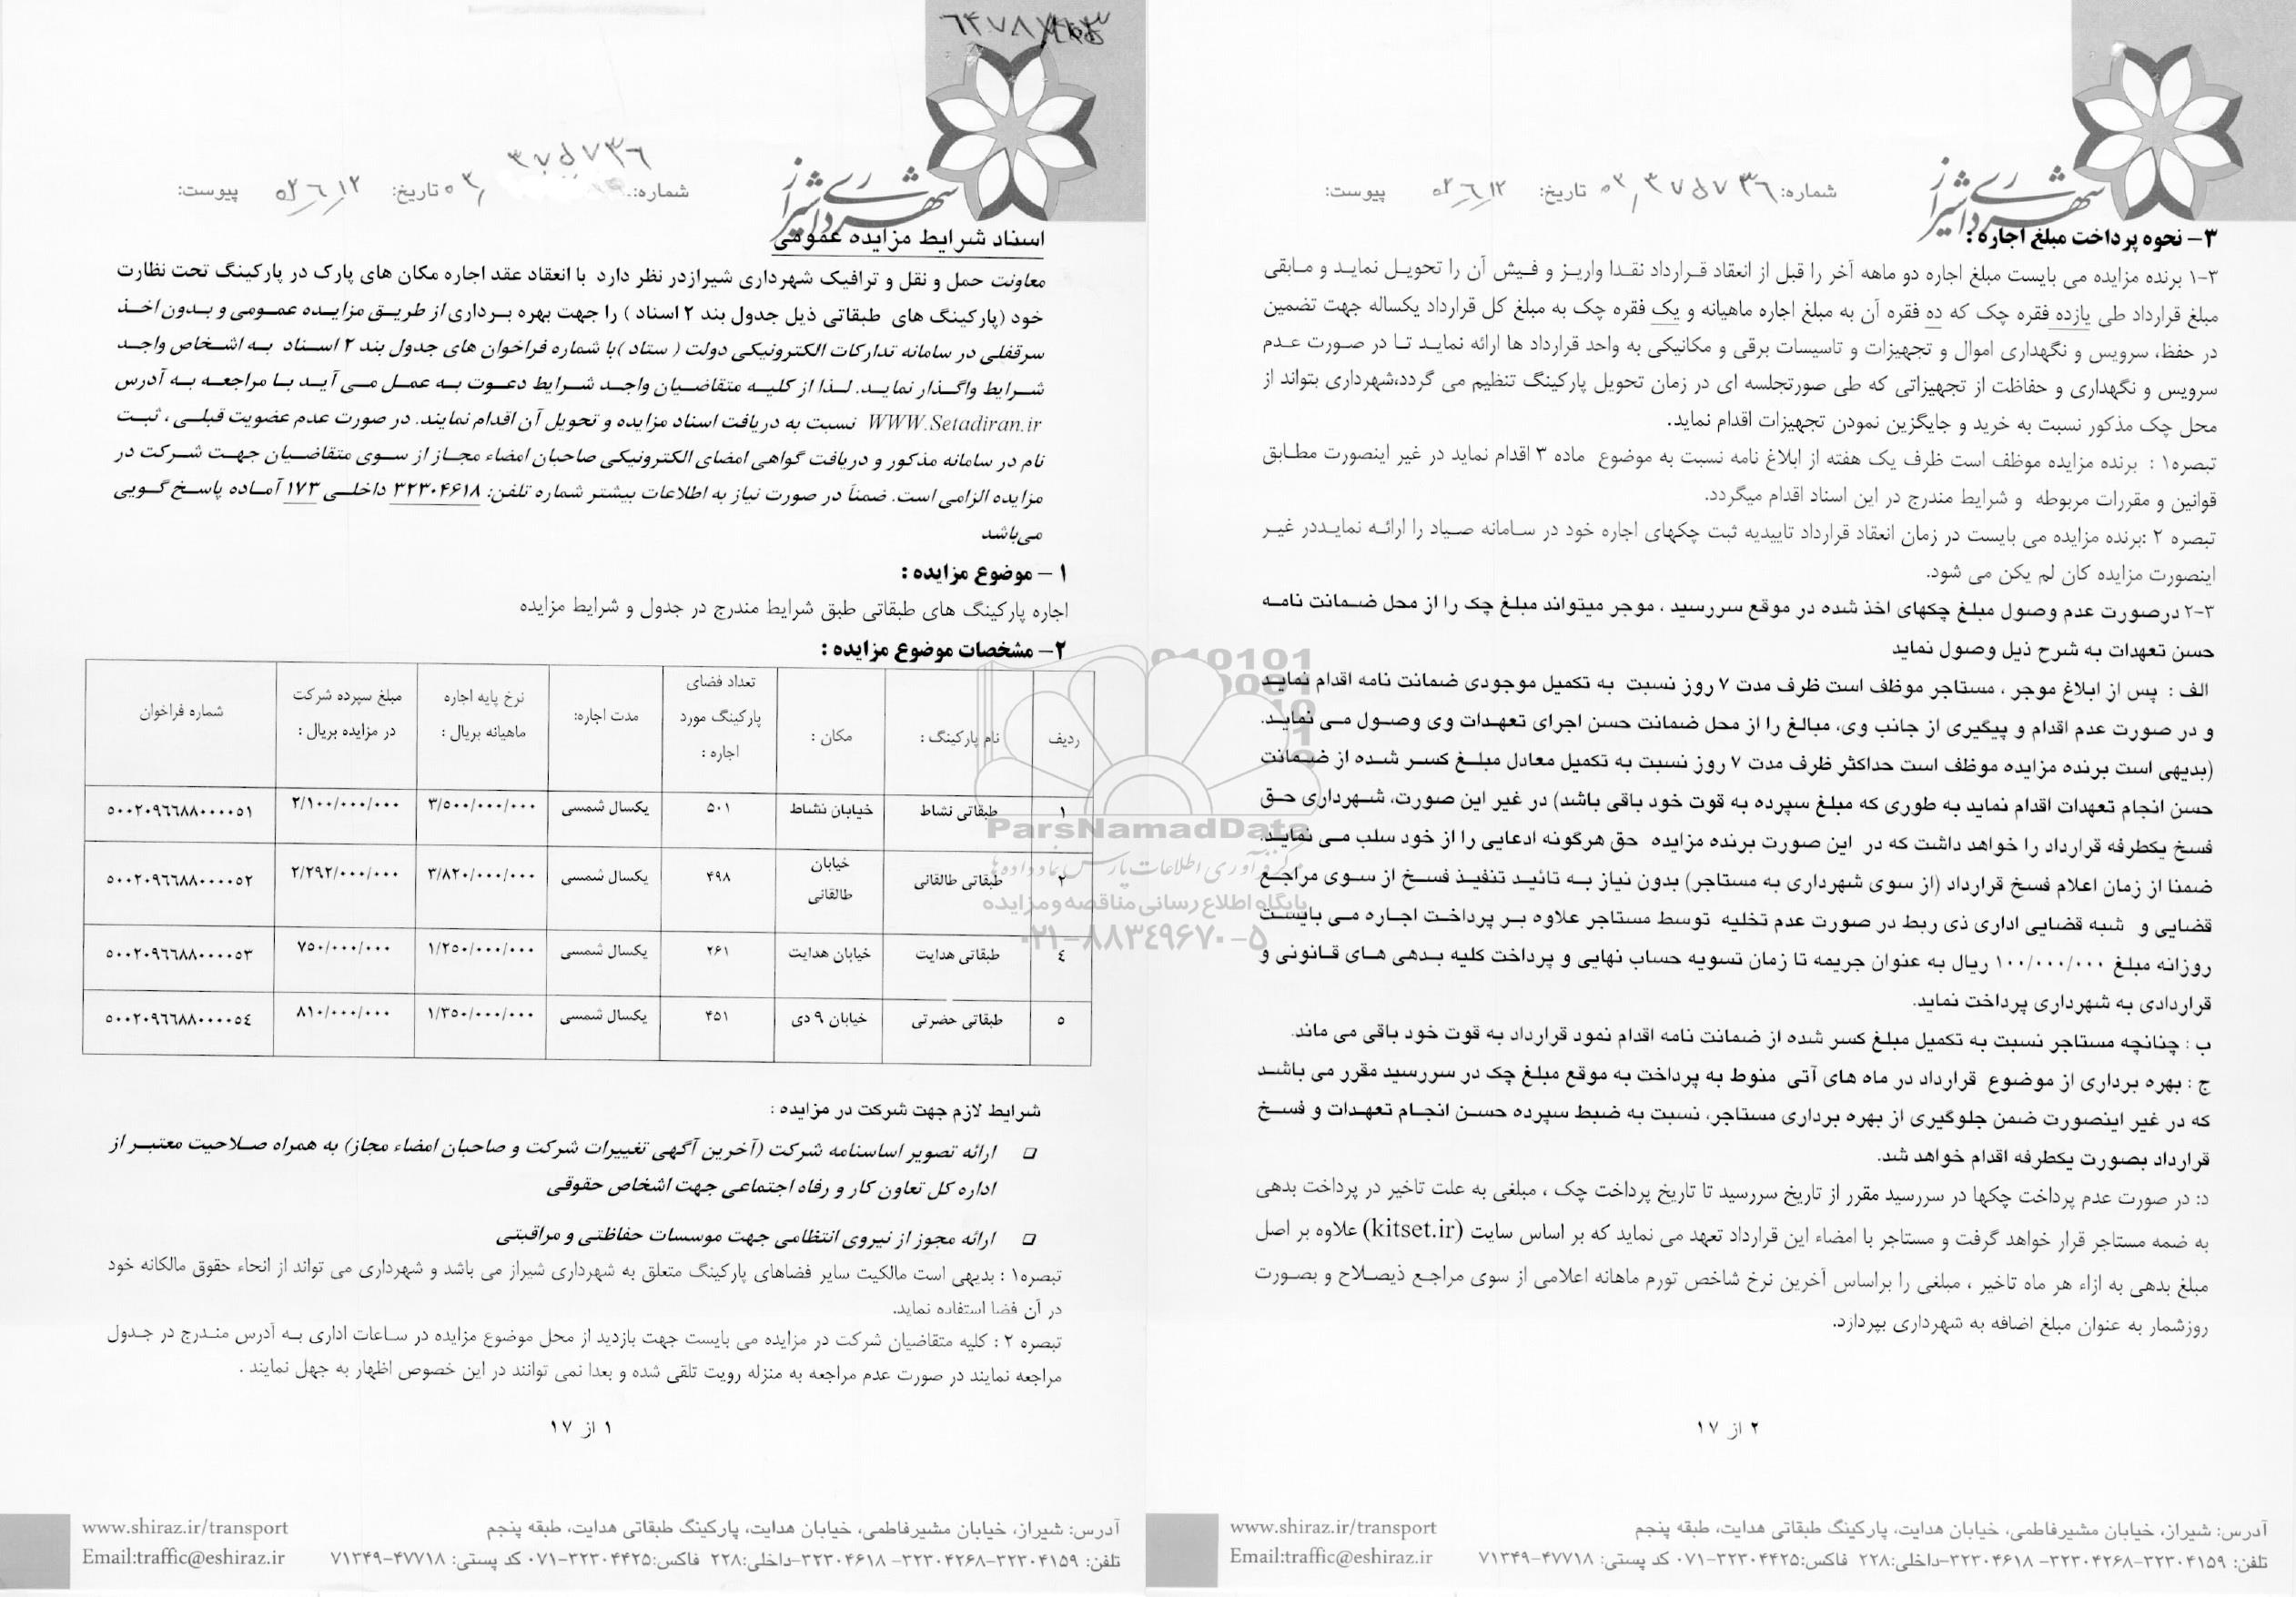 شهرداری شیراز
شماره: ۰۳/۳۷۵۷۳۶
تاریخ: ۰۳/۶/۱۲
پیوست:
اسناد شرایط مزایده عمومی
معاونت حمل و نقل و ترافیک شهرداری شیرازدر نظر دارد با انعقاد عقد اجاره مکان های پارک در پارکینگ تحت نظارت
خود (پارکینگ های طبقاتی ذیل جدول بند ۲ اسناد ) را جهت بهره برداری از طریق مزایده عمومی و بدون اخذ
سرقفلی در سامانه تدارکات الکترونیکی دولت ( ستاد )با شماره فراخوان های جدول بند ۲ اسناد به اشخاص واجد
شرایط واگذار نماید. لذا از کلیه متقاضیان واجد شرایط دعوت به عمل می آید با مراجعه به آدرس
WWW.Setadiran.ir نسبت به دریافت اسناد مزایده و تحویل آن اقدام نمایند. در صورت عدم عضویت قبلی ، ثبت
نام در سامانه مذکور و دریافت گواهی امضای الکترونیکی صاحبان امضاء مجاز از سوی متقاضیان جهت شرکت در
مزایده الزامی است. ضمناً در صورت نیاز به اطلاعات بیشتر شماره تلفن: ۳۲۳۰۴۶۱۸ داخلی ۱۷۳ آماده پاسخ گویی
می‌باشد
۱ – موضوع مزایده :
اجاره پارکینگ های طبقاتی طبق شرایط مندرج در جدول و شرایط مزایده
۲- مشخصات موضوع مزایده :
ردیف | نام پارکینگ : | مکان : | تعداد فضای پارکینگ مورد اجاره : | مدت اجاره: | نرخ پایه اجاره ماهیانه بریال : | مبلغ سپرده شرکت در مزایده بریال : | شماره فراخوان
۱ | طبقاتی نشاط | خیابان نشاط | ۵۰۱ | یکسال شمسی | ۳/۵۰۰/۰۰۰/۰۰۰ | ۲/۱۰۰/۰۰۰/۰۰۰ | ۵۰۰۲۰۹۶۶۸۸۰۰۰۰۵۱
۲ | طبقاتی طالقانی | خیابان طالقانی | ۴۹۸ | یکسال شمسی | ۳/۸۲۰/۰۰۰/۰۰۰ | ۲/۲۹۲/۰۰۰/۰۰۰ | ۵۰۰۲۰۹۶۶۸۸۰۰۰۰۵۲
٤ | طبقاتی هدایت | خیابان هدایت | ۲۶۱ | یکسال شمسی | ۱/۲۵۰/۰۰۰/۰۰۰ | ۷۵۰/۰۰۰/۰۰۰ | ۵۰۰۲۰۹۶۶۸۸۰۰۰۰۵۳
۵ | طبقاتی حضرتی | خیابان ۹ دی | ۴۵۱ | یکسال شمسی | ۱/۳۵۰/۰۰۰/۰۰۰ | ۸۱۰/۰۰۰/۰۰۰ | ۵۰۰۲۰۹۶۶۸۸۰۰۰۰۵٤
شرایط لازم جهت شرکت در مزایده :
ارائه تصویر اساسنامه شرکت (آخرین آگهی تغییرات شرکت و صاحبان امضاء مجاز) به همراه صلاحیت معتبر از
اداره کل تعاون کار و رفاه اجتماعی جهت اشخاص حقوقی
ارائه مجوز از نیروی انتظامی جهت موسسات حفاظتی و مراقبتی
تبصره۱ : بدیهی است مالکیت سایر فضاهای پارکینگ متعلق به شهرداری شیراز می باشد و شهرداری می تواند از انحاء حقوق مالکانه خود
در آن فضا استفاده نماید.
تبصره ۲ : کلیه متقاضیان شرکت در مزایده می بایست جهت بازدید از محل موضوع مزایده در ساعات اداری به آدرس مندرج در جدول
مراجعه نمایند در صورت عدم مراجعه به منزله رویت تلقی شده و بعدا نمی توانند در این خصوص اظهار به جهل نمایند .
۱ از ۱۷
آدرس: شیراز، خیابان مشیرفاطمی، خیابان هدایت، پارکینگ طبقاتی هدایت، طبقه پنجم
تلفن: ۳۲۳۰۴۱۵۹-۳۲۳۰۴۲۶۸- ۳۲۳۰۴۶۱۸-داخلی:۲۲۸ فاکس:۳۲۳۰۴۴۲۵-۰۷۱ کد پستی: ۴۷۷۱۸-۷۱۳۴۹
www.shiraz.ir/transport
Email:traffic@eshiraz.ir
شهرداری شیراز
شماره: ۰۳/۳۷۵۷۳۶
تاریخ: ۰۳/۶/۱۲
پیوست:
۳- نحوه پرداخت مبلغ اجاره :
۳-۱ برنده مزایده می بایست مبلغ اجاره دو ماهه آخر را قبل از انعقاد قرارداد نقدا واریز و فیش آن را تحویل نماید و مابقی
مبلغ قرارداد طی یازده فقره چک که ده فقره آن به مبلغ اجاره ماهیانه و یک فقره چک به مبلغ کل قرارداد یکساله جهت تضمین
در حفظ، سرویس و نگهداری اموال و تجهیزات و تاسیسات برقی و مکانیکی به واحد قرارداد ها ارائه نماید تا در صورت عدم
سرویس و نگهداری و حفاظت از تجهیزاتی که طی صورتجلسه ای در زمان تحویل پارکینگ تنظیم می گردد،شهرداری بتواند از
محل چک مذکور نسبت به خرید و جایگزین نمودن تجهیزات اقدام نماید.
تبصره۱ : برنده مزایده موظف است ظرف یک هفته از ابلاغ نامه نسبت به موضوع ماده ۳ اقدام نماید در غیر اینصورت مطابق
قوانین و مقررات مربوطه و شرایط مندرج در این اسناد اقدام میگردد.
تبصره ۲ :برنده مزایده می بایست در زمان انعقاد قرارداد تاییدیه ثبت چکهای اجاره خود در سامانه صیاد را ارائه نمایددر غیر
اینصورت مزایده کان لم یکن می شود.
۳-۲ درصورت عدم وصول مبلغ چکهای اخذ شده در موقع سررسید ، موجر میتواند مبلغ چک را از محل ضمانت نامه
حسن تعهدات به شرح ذیل وصول نماید
الف : پس از ابلاغ موجر ، مستاجر موظف است ظرف مدت ۷ روز نسبت به تکمیل موجودی ضمانت نامه اقدام نماید
و در صورت عدم اقدام و پیگیری از جانب وی، مبالغ را از محل ضمانت حسن اجرای تعهدات وی وصول می نماید.
(بدیهی است برنده مزایده موظف است حداکثر ظرف مدت ۷ روز نسبت به تکمیل معادل مبلغ کسر شده از ضمانت
حسن انجام تعهدات اقدام نماید به طوری که مبلغ سپرده به قوت خود باقی باشد) در غیر این صورت، شهرداری حق
فسخ یکطرفه قرارداد را خواهد داشت که در این صورت برنده مزایده حق هرگونه ادعایی را از خود سلب می نماید.
ضمنا از زمان اعلام فسخ قرارداد (از سوی شهرداری به مستاجر) بدون نیاز به تائید تنفیذ فسخ از سوی مراجع
قضایی و شبه قضایی اداری ذی ربط در صورت عدم تخلیه توسط مستاجر علاوه بر پرداخت اجاره می بایست
روزانه مبلغ ۱۰۰/۰۰۰/۰۰۰ ریال به عنوان جریمه تا زمان تسویه حساب نهایی و پرداخت کلیه بدهی های قانونی و
قراردادی به شهرداری پرداخت نماید.
ب : چنانچه مستاجر نسبت به تکمیل مبلغ کسر شده از ضمانت نامه اقدام نمود قرارداد به قوت خود باقی می ماند.
ج : بهره برداری از موضوع قرارداد در ماه های آتی منوط به پرداخت به موقع مبلغ چک در سررسید مقرر می باشد
که در غیر اینصورت ضمن جلوگیری از بهره برداری مستاجر، نسبت به ضبط سپرده حسن انجام تعهدات و فسخ
قرارداد بصورت یکطرفه اقدام خواهد شد.
د: در صورت عدم پرداخت چکها در سررسید مقرر از تاریخ سررسید تا تاریخ پرداخت چک ، مبلغی به علت تاخیر در پرداخت بدهی
به ضمه مستاجر قرار خواهد گرفت و مستاجر با امضاء این قرارداد تعهد می نماید که بر اساس سایت (kitset.ir) علاوه بر اصل
مبلغ بدهی به ازاء هر ماه تاخیر ، مبلغی را براساس آخرین نرخ شاخص تورم ماهانه اعلامی از سوی مراجع ذیصلاح و بصورت
روزشمار به عنوان مبلغ اضافه به شهرداری بپردازد.
۲ از ۱۷
آدرس: شیراز، خیابان مشیرفاطمی، خیابان هدایت، پارکینگ طبقاتی هدایت، طبقه پنجم
تلفن: ۳۲۳۰۴۱۵۹-۳۲۳۰۴۲۶۸- ۳۲۳۰۴۶۱۸-داخلی:۲۲۸ فاکس:۳۲۳۰۴۴۲۵-۰۷۱ کد پستی: ۴۷۷۱۸-۷۱۳۴۹
www.shiraz.ir/transport
Email:traffic@eshiraz.ir
ParsNamadData
مرکز فرآوری اطلاعات پارس نماد داده ها
پایگاه اطلاع رسانی مناقصه و مزایده
۰۲۱-۸۸۳٤۹۶۷۰-۵